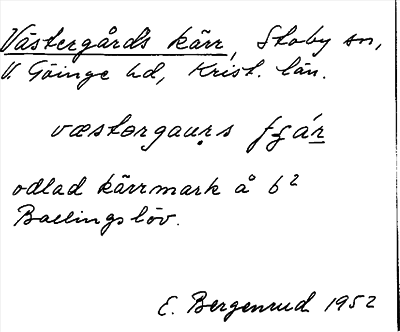 Västergårds kärr, Stoby sn,
V. Göinge hd, Krist. län.
væstərgaurs
odlad kärrmark å 6²
Ballingslöv.
E. Bergenrud 1952